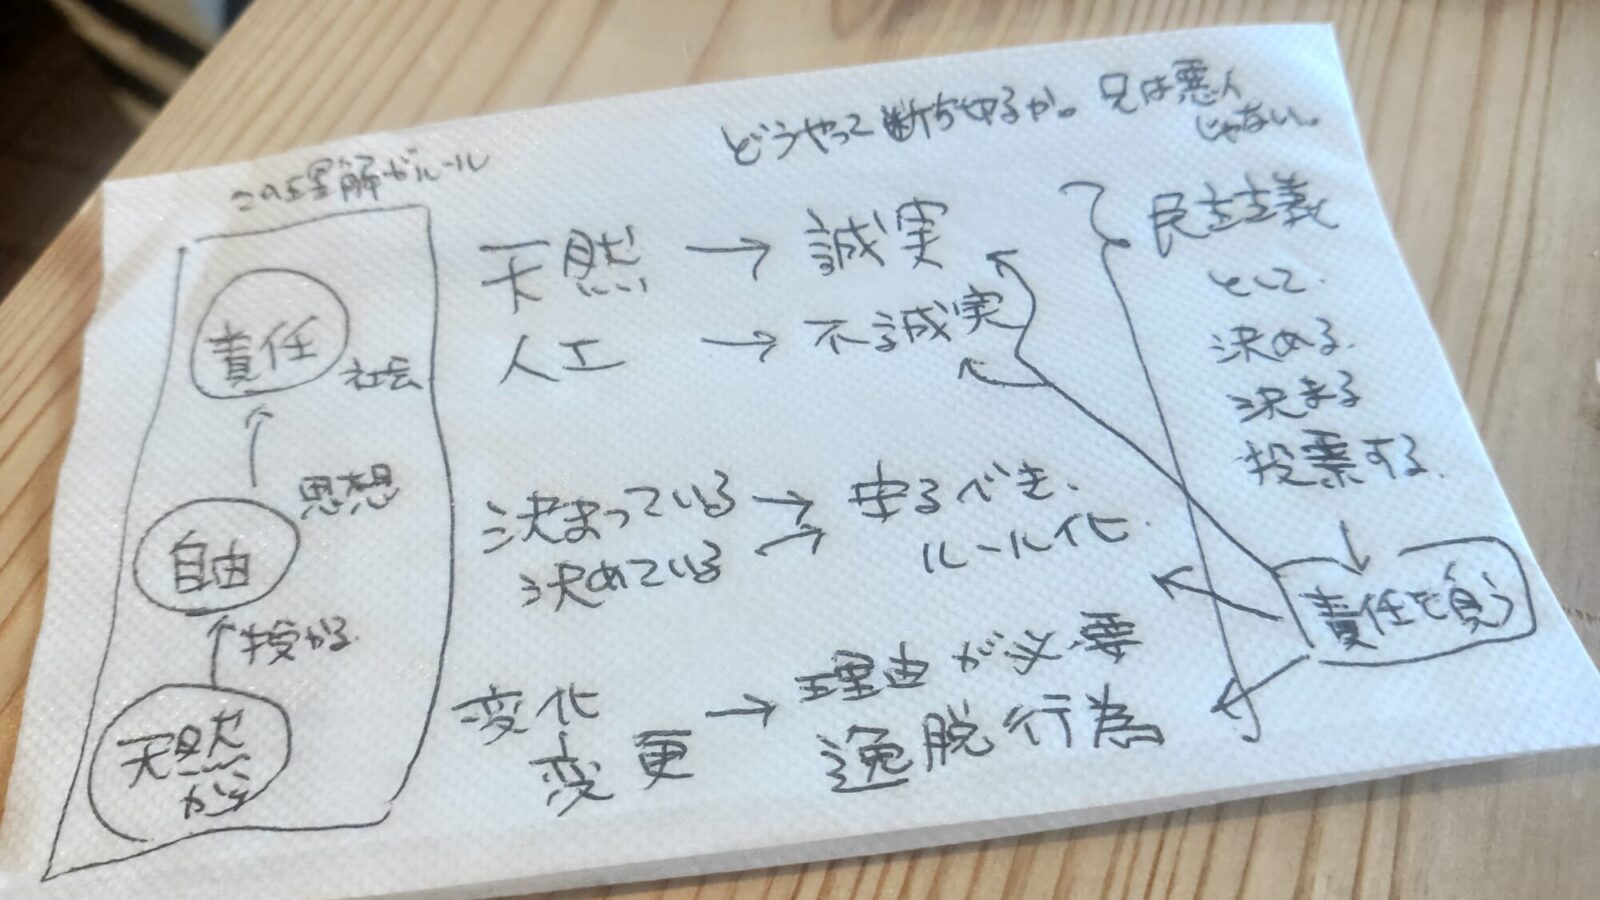 どうやって断ち切るか。兄は悪人
じゃない。
この理解がルール
責任
社会
↑
思想
自由
↑授かる
天然から
天然 → 誠実
人工 → 不誠実
決まっている → 守るべき、
決めている → ルール化
変化 → 理由が必要
変更 逸脱行為
民主主義
として、
決める
決まる
投票する
↓
責任を負う